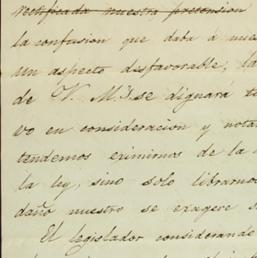 rectificada nuestra pretension
la confusion que daba á nues
un aspecto desfavorable, la
de V. M. se dignará te
vo en consideracion y nota
tendemos eximirnos de la
la ley, sino solo librarno
daño nuestro se exagere s
El legislador considerando